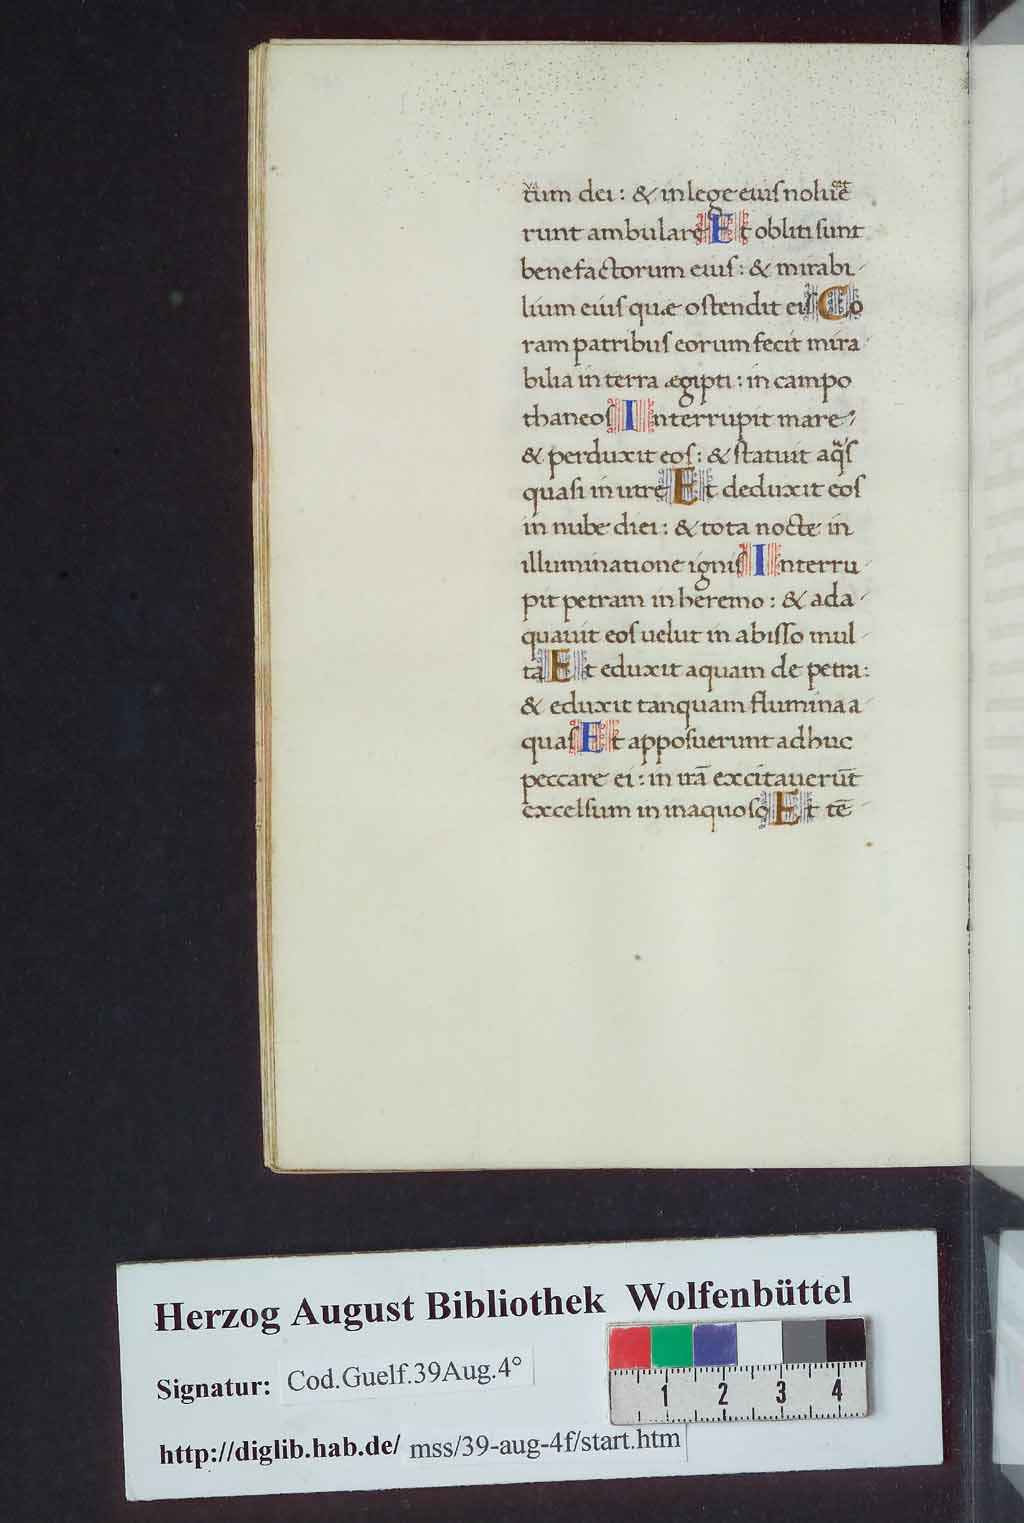 tum dei : & in lege eius nolue
runt ambulare Et obliti sunt
benefactorum eius : & mirabi
lium eius quæ ostendit eis Co
ram patribus eorum fecit mira
bilia in terra ægipti : in campo
thaneos Interrupit mare
& perduxit eos : & statuit aq̃s
quasi in utre Et deduxit eos
in nube diei : & tota nocte in
illuminatione ignis Interru
pit petram in heremo : & ada
quauit eos uelut in abisso mul
ta Et eduxit aquam de petra :
& eduxit tanquam flumina a
quas Et apposuerunt adhuc
peccare ei : in irã excitauerũt
excelsum in inaquoso Et tẽ
Herzog August Bibliothek Wolfenbüttel
Signatur: Cod.Guelf.39Aug.4°
1 2 3 4
http://diglib.hab.de/ mss/39-aug-4f/start.htm